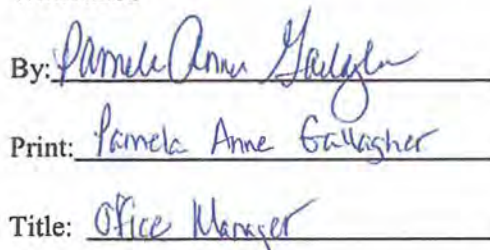 By: Pamela Anne Gallagher
Print: Pamela Anne Gallagher
Title: Office Manager